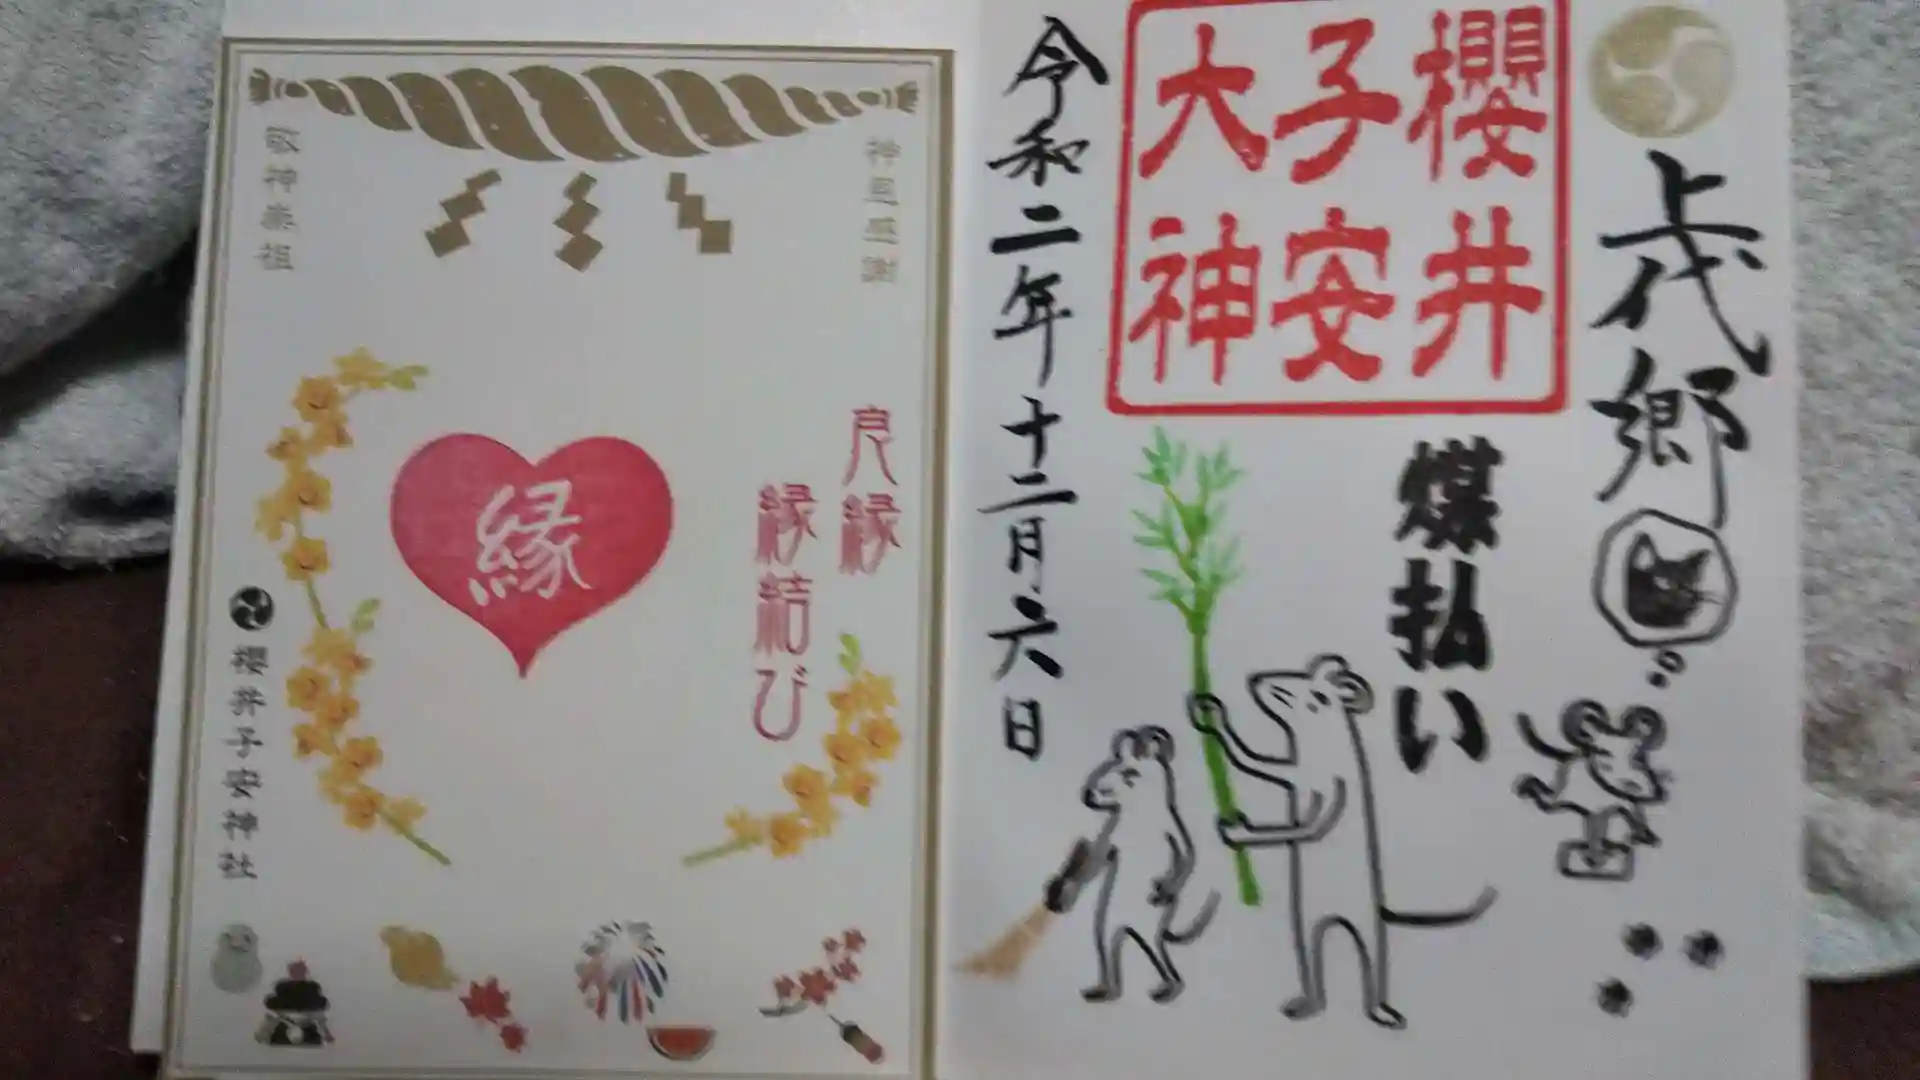 上代郷
櫻井
子安
大神
煤払い
令和二年十二月六日
神恩感謝
敬神崇祖
良縁
縁結び
縁
櫻井子安神社